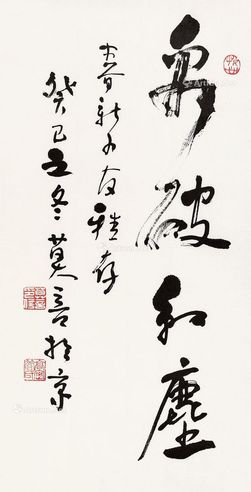 看破紅塵
春新小友雅存
癸巳之冬莫言於京